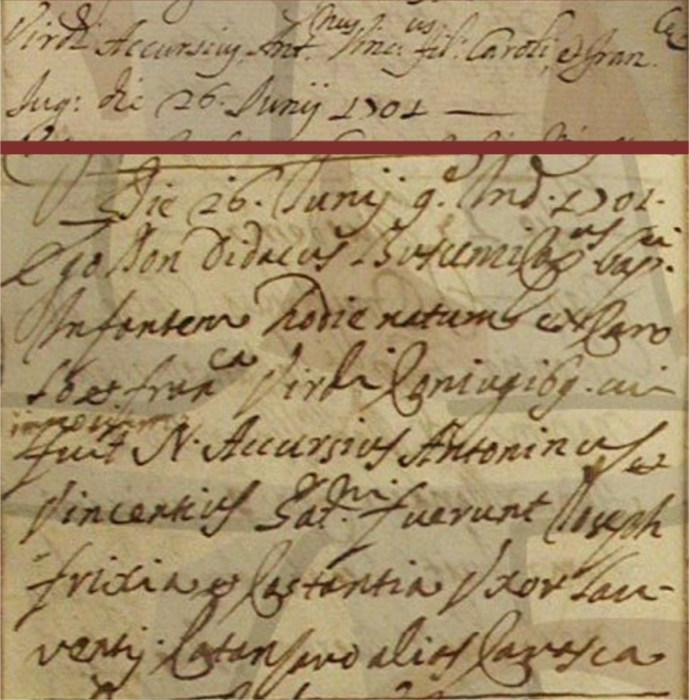 Virdi Accursius, Ant.nus, Vinc.us fil: Caroli, et fran.
Jug: die 26. Junij 1701
Die 26. Junij 9.e Ind. 1701.
Ego Don Didacus Buscemi bap.
Infantem hodie natum ex Caro
lo et fran.ca Virdi Coniugibq. cui
impositum
fuit N. Accursius Antoninus et
Vincentius Pat.ni fuerunt Joseph
frixia et Costantia Uxor Lau-
rentij Catan alias Carasca